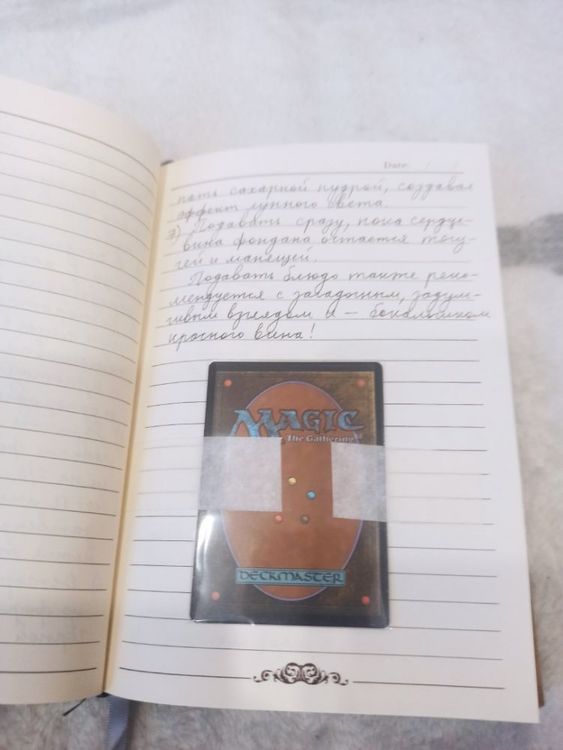 Date: / /
пать сахарной пудрой, создавая
эффект лунного света.
7) Подавать сразу, пока сердце-
вина фондана остается тягу-
чей и манящей.
Подавать блюдо также реко-
мендуется с загадочным, задум-
чивым взглядом и – бокальчиком
красного вина!
MAGIC
The Gathering
DECKMASTER